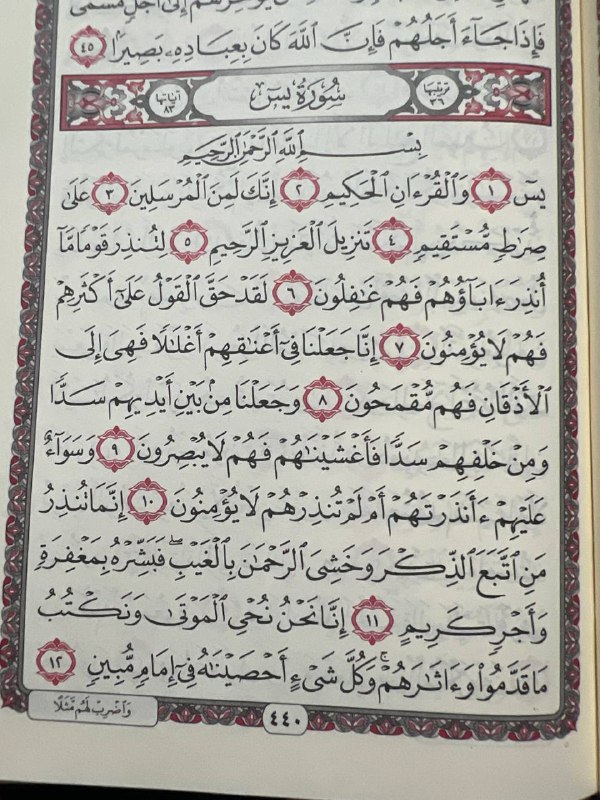 يُؤَخِّرُهُمْ إِلَىٰٓ أَجَلٍ مُّسَمًّى
فَإِذَا جَآءَ أَجَلُهُمْ فَإِنَّ ٱللَّهَ كَانَ بِعِبَادِهِۦ بَصِيرًۢا ٤٥
ترتيبها ٣٦ سُورَةُ يسٓ آياتها ٨٣
بِسْمِ ٱللَّهِ ٱلرَّحْمَٰنِ ٱلرَّحِيمِ
يسٓ ١ وَٱلْقُرْءَانِ ٱلْحَكِيمِ ٢ إِنَّكَ لَمِنَ ٱلْمُرْسَلِينَ ٣ عَلَىٰ
صِرَٰطٍ مُّسْتَقِيمٍ ٤ تَنزِيلَ ٱلْعَزِيزِ ٱلرَّحِيمِ ٥ لِتُنذِرَ قَوْمًا مَّآ
أُنذِرَ ءَابَآؤُهُمْ فَهُمْ غَٰفِلُونَ ٦ لَقَدْ حَقَّ ٱلْقَوْلُ عَلَىٰٓ أَكْثَرِهِمْ
فَهُمْ لَا يُؤْمِنُونَ ٧ إِنَّا جَعَلْنَا فِىٓ أَعْنَٰقِهِمْ أَغْلَٰلًا فَهِىَ إِلَى
ٱلْأَذْقَانِ فَهُم مُّقْمَحُونَ ٨ وَجَعَلْنَا مِنۢ بَيْنِ أَيْدِيهِمْ سَدًّا
وَمِنْ خَلْفِهِمْ سَدًّا فَأَغْشَيْنَٰهُمْ فَهُمْ لَا يُبْصِرُونَ ٩ وَسَوَآءٌ
عَلَيْهِمْ ءَأَنذَرْتَهُمْ أَمْ لَمْ تُنذِرْهُمْ لَا يُؤْمِنُونَ ١٠ إِنَّمَا تُنذِرُ
مَنِ ٱتَّبَعَ ٱلذِّكْرَ وَخَشِىَ ٱلرَّحْمَٰنَ بِٱلْغَيْبِ ۖ فَبَشِّرْهُ بِمَغْفِرَةٍ
وَأَجْرٍ كَرِيمٍ ١١ إِنَّا نَحْنُ نُحْىِ ٱلْمَوْتَىٰ وَنَكْتُبُ
مَا قَدَّمُوا۟ وَءَاثَٰرَهُمْ ۚ وَكُلَّ شَىْءٍ أَحْصَيْنَٰهُ فِىٓ إِمَامٍ مُّبِينٍ ١٢
وَاضْرِبْ لَهُم مَّثَلًا
٤٤٠